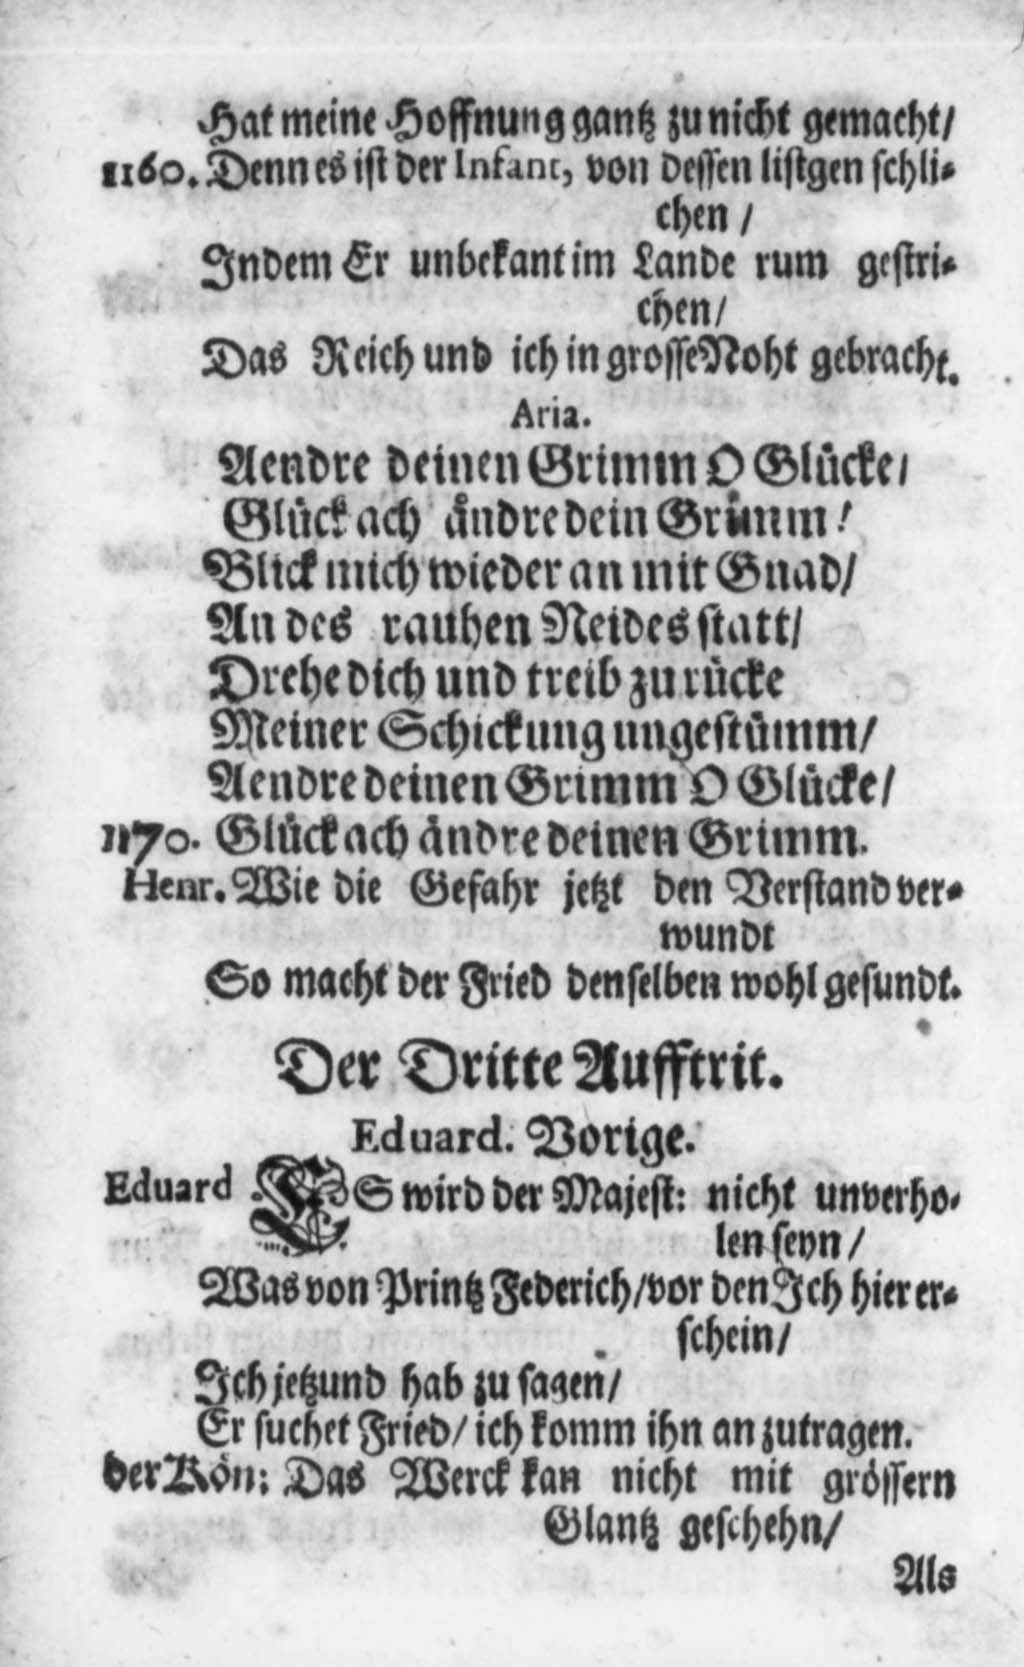 Hat meine Hoffnung gantz zu nicht gemacht/
1160. Denn es ist der Infant, von dessen listgen schli-
chen /
Indem Er unbekant im Lande rum gestri-
chen/
Das Reich und ich in grosse Noht gebracht.
Aria.
Aendre deinen Grimm O Glücke/
Glück ach ändre dein Grimm!
Blick mich wieder an mit Gnad/
An des rauhen Neides statt/
Drehe dich und treib zu rücke
Meiner Schickung ungestümm/
Aendre deinen Grimm O Glücke/
1170. Glück ach ändre deinen Grimm.
Henr. Wie die Gefahr jetzt den Verstand ver-
wundt
So macht der Fried denselben wohl gesundt.
Der Dritte Aufftrit.
Eduard. Vorige.
Eduard ES wird der Majest: nicht unverho-
len seyn /
Was von Printz Federich/vor den Ich hier er-
schein/
Ich jetzund hab zu sagen/
Er suchet Fried/ ich komm ihn an zutragen.
der Kön: Das Werck kan nicht mit grössern
Glantz geschehn/
Als